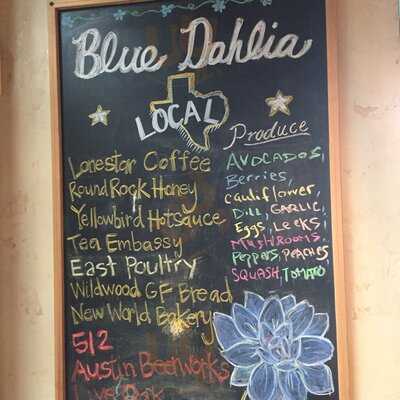 Blue Dahlia
LOCAL
Lonestar Coffee
Round Rock Honey
Yellowbird Hotsauce
Tea Embassy
East Poultry
Wildwood GF Bread
New World Bakery
512
Austin Beerworks
Live Oak
Produce
AVOCADOS,
Berries,
Cauliflower,
Dill, GARLIC,
Eggs, Leeks,
MUSHROOMS,
Peppers, PEACHES,
SQUASH, TOMATO